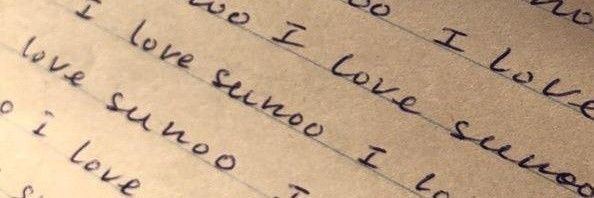 no
oo I love
noo I love sunoo
I love sunoo I lo
love sunoo I
o i love
su